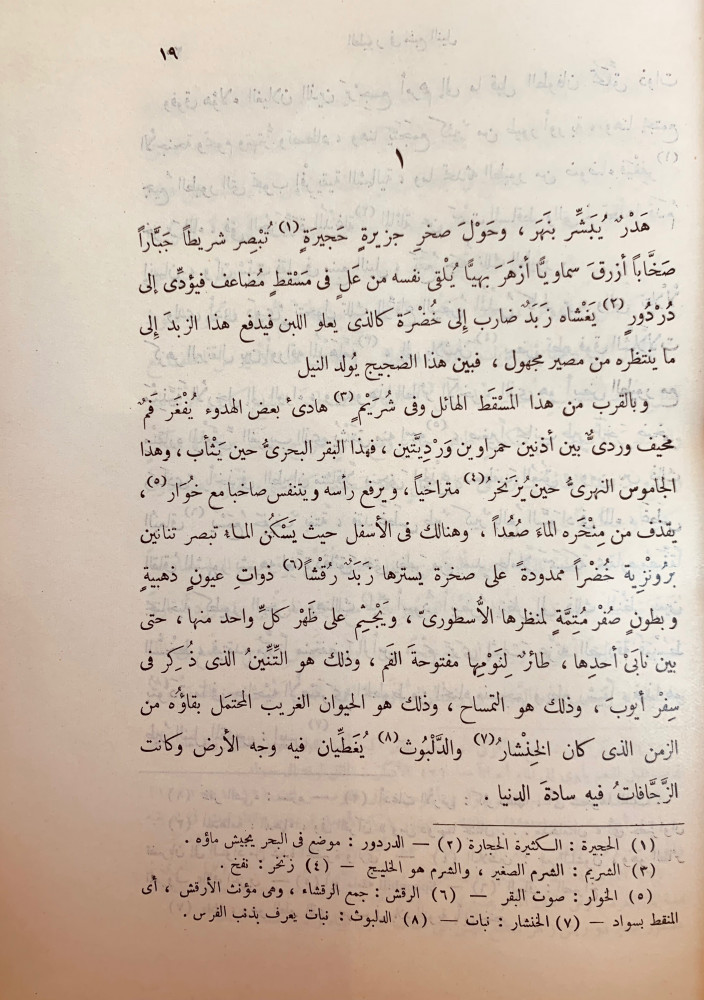 ١٩
١
هَدْرٌ يُبَشِّر بنَهَر ، وحَوْلَ صخرِ جزيرةٍ حَجيرَةٍ (١) تُبْصِر شريطاً جَبَّاراً
صَخَّاباً أزرقَ سماويًّا أزهَرَ بهيًّا يُلْقى نفسه من عَلٍ فى مَسْقطٍ مُضاعف فيؤدِّى إلى
دُرْدُورٍ (٢) يَغْشاه زَبَدٌ ضارب إلى خُضْرَة كالذى يعلو اللبن فيدفع هذا الزبدَ إلى
ما ينتظره من مصير مجهول ، فبين هذا الضجيج يُولد النيل
وبالقرب من هذا المَسْقَط الهائل وفى شُرَيْمٍ (٣) هادىٔ بعض الهدوء يُفْغَر فَمٌ
مخيف وردىٌّ بين أذنين حمراوين وَرْدِيَّتين ، فهذا البقر البحرىُّ حين يَثْأب ، وهذا
الجاموس النهرىُّ حين يُزَنخرُ (٤) متراخياً ، ويرفع رأسه ويتنفس صاخبا مع خُوَار (٥) ،
يقذف من مِنْخَره الماءَ صُعُداً ، وهنالك فى الأسفل حيث يَسْكُن المـاء تبصر تنانين
برُونْزِية خُضْراً ممدودةً على صخرة يسترها زَبَدٌ رُقْشاً (٦) ذواتِ عيونٍ ذهبيةٍ
وبطونٍ صُفْرٍ مُتِمَّةٍ لمنظرها الأُسطورىّ ، ويَجْثِم على ظَهْر كلِّ واحد منها ، حتى
بين نابَىْ أحدِها ، طائرٌ لِنَوْمِها مفتوحةَ الفَم ، وذلك هو التِّنِّينُ الذى ذُكِر فى
سِفْر أيوبَ ، وذلك هو التمساح ، وذلك هو الحيوان الغريب المحتمَل بقاؤُه من
الزمن الذى كان الخِنْشارُ (٧) والدَّلْبُوث (٨) يُغَطِّيان فيه وجه الأرض وكانت
الزَّحَّافاتُ فيه سادةَ الدنيا .
(١) الحجيرة : الـكثيرة الحجارة (٢) — الدردور : موضع فى البحر يجيش ماؤه .
(٣) الشريم : الشرم الصغير ، والشرم هو الخليـج — (٤) زنخر : نفخ .
(٥) الخوار : صوت البقر — (٦) الرقش : جمع الرقشاء ، وهى مؤنث الأرقش ، أى
المنقط بسواد — (٧) الخنشار : نبات — (٨) الدلبوث : نبات يعرف بذنب الفرس .